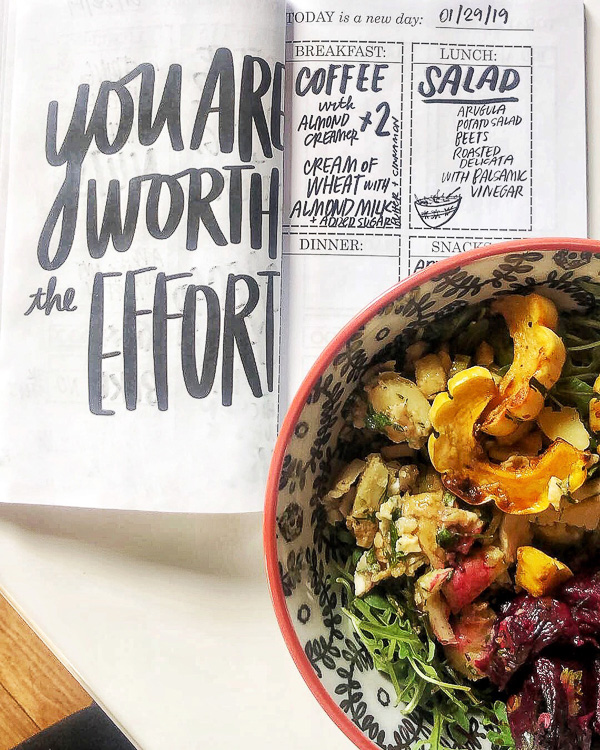 YOU ARE
WORTH
the EFFORT
TODAY is a new day: 01/29/19
BREAKFAST:
COFFEE
with
ALMOND
CREAMER x2
CREAM OF
WHEAT WITH
ALMOND MILK
+ ADDED SUGAR
BUTTER + CINNAMON
LUNCH:
SALAD
ARUGULA
POTATO SALAD
BEETS
ROASTED
DELICATA
WITH BALSAMIC
VINEGAR
DINNER:
SNACKS